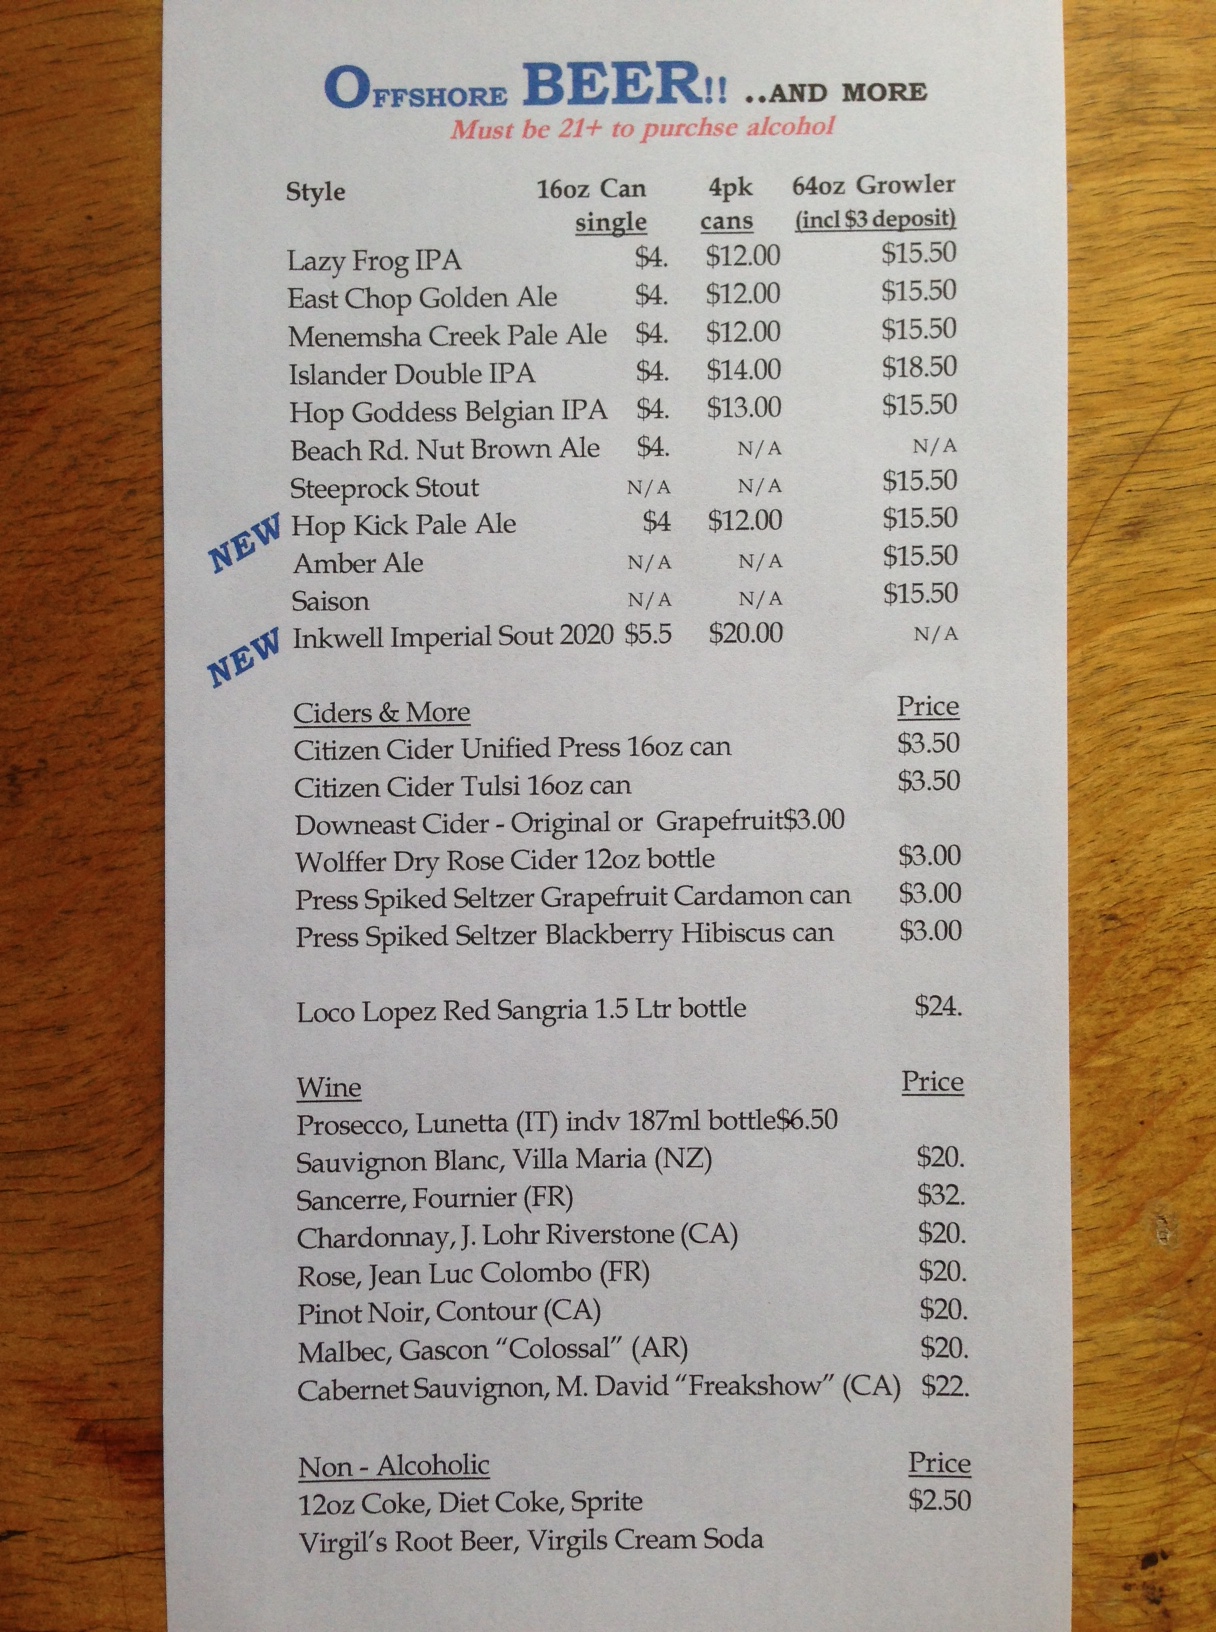 OFFSHORE BEER!! ..AND MORE
Must be 21+ to purchse alcohol
Style 16oz Can 4pk 64oz Growler
single cans (incl $3 deposit)
Lazy Frog IPA $4. $12.00 $15.50
East Chop Golden Ale $4. $12.00 $15.50
Menemsha Creek Pale Ale $4. $12.00 $15.50
Islander Double IPA $4. $14.00 $18.50
Hop Goddess Belgian IPA $4. $13.00 $15.50
Beach Rd. Nut Brown Ale $4. N/A N/A
Steeprock Stout N/A N/A $15.50
NEW Hop Kick Pale Ale $4 $12.00 $15.50
Amber Ale N/A N/A $15.50
Saison N/A N/A $15.50
NEW Inkwell Imperial Sout 2020 $5.5 $20.00 N/A
Ciders & More Price
Citizen Cider Unified Press 16oz can $3.50
Citizen Cider Tulsi 16oz can $3.50
Downeast Cider - Original or Grapefruit$3.00
Wolffer Dry Rose Cider 12oz bottle $3.00
Press Spiked Seltzer Grapefruit Cardamon can $3.00
Press Spiked Seltzer Blackberry Hibiscus can $3.00
Loco Lopez Red Sangria 1.5 Ltr bottle $24.
Wine Price
Prosecco, Lunetta (IT) indv 187ml bottle$6.50
Sauvignon Blanc, Villa Maria (NZ) $20.
Sancerre, Fournier (FR) $32.
Chardonnay, J. Lohr Riverstone (CA) $20.
Rose, Jean Luc Colombo (FR) $20.
Pinot Noir, Contour (CA) $20.
Malbec, Gascon “Colossal” (AR) $20.
Cabernet Sauvignon, M. David “Freakshow” (CA) $22.
Non - Alcoholic Price
12oz Coke, Diet Coke, Sprite $2.50
Virgil’s Root Beer, Virgils Cream Soda